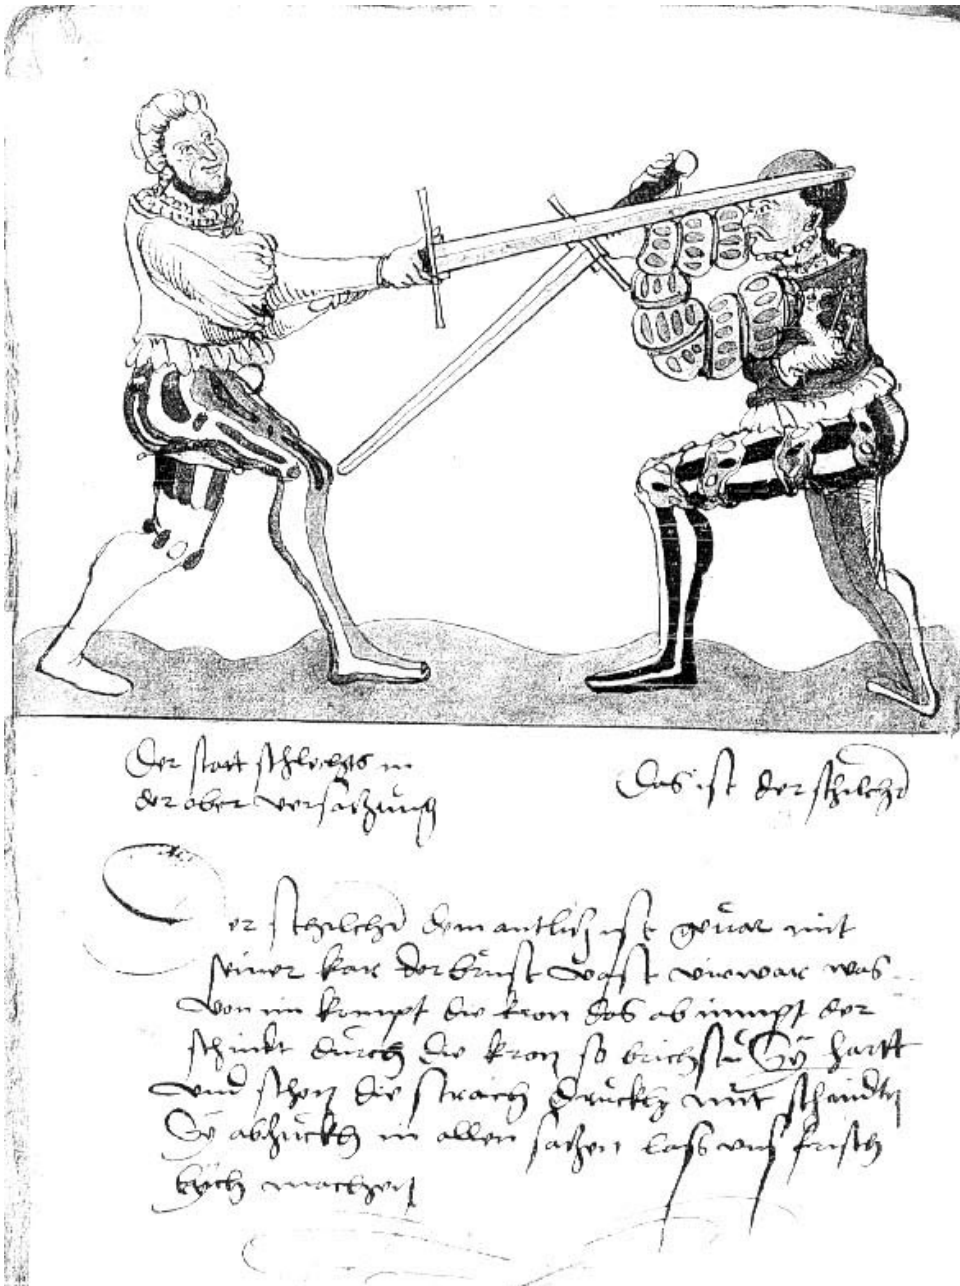 Der statt schlechts in
der ober versaczu̇ng
Das ist der schilcher
Der schilcher dem antlicz ist geuar mit
seiner kar der brust vast vierwar was
von im kompt die kron das ab nimpt der
schnidt durch die kron so brichstu Sÿ hartt
und schon die straich druckh mit schnidtn
Sÿ abzuckh in allen sachen lass uns frisch
machen